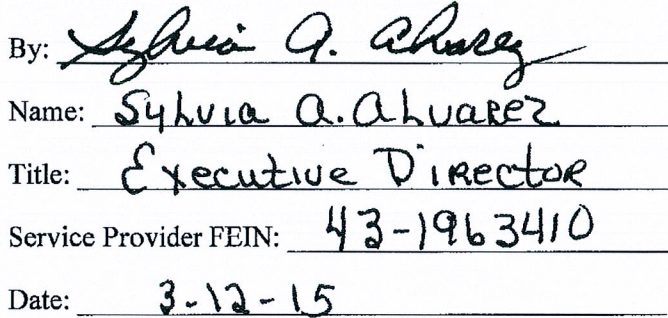 By: Sylvia A. Alvarez
Name: Sylvia A. Alvarez
Title: Executive Director
Service Provider FEIN: 43-1963410
Date: 3-12-15